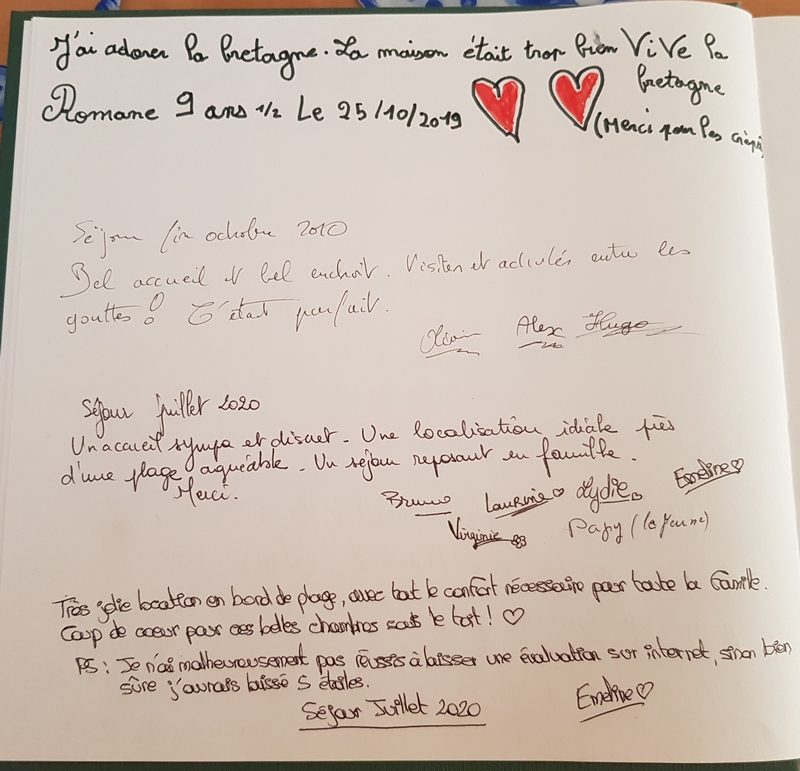 J'ai adorer la bretagne. La maison était trop bien ViVe la
bretagne
Romane 9 ans 1/2 Le 25/10/2019
(Merci pour les crèpes
Séjour fin octobre 2010
Bel accueil et bel endroit. Visites et activités entre les
gouttes! C'était parfait.
Alex Hugo
Séjour Juillet 2020
Un accueil sympa et discret - Une localisation idéale près
d'une plage agréable - Un séjour reposant en famille.
Merci.
Bruno Laurine♡ Lydie Emeline♡
Virginie Papy (le jeune)
Très jolie location en bord de plage, avec tout le confort nécessaire pour toute la famille.
Coup de coeur pour ces belles chambres sous le toit! ♡
PS: Je n'ai malheureusement pas réussis à laisser une évaluation sur internet, sinon bien
sûre j'aurais laissé 5 étoiles.
Séjour Juillet 2020 Emeline♡